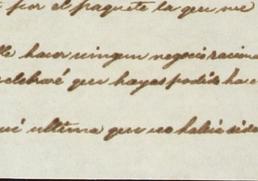 por el paquete la que me
hacer ningun negocio raciona
celebraré que hayas podido hace
ultima que no habia sido